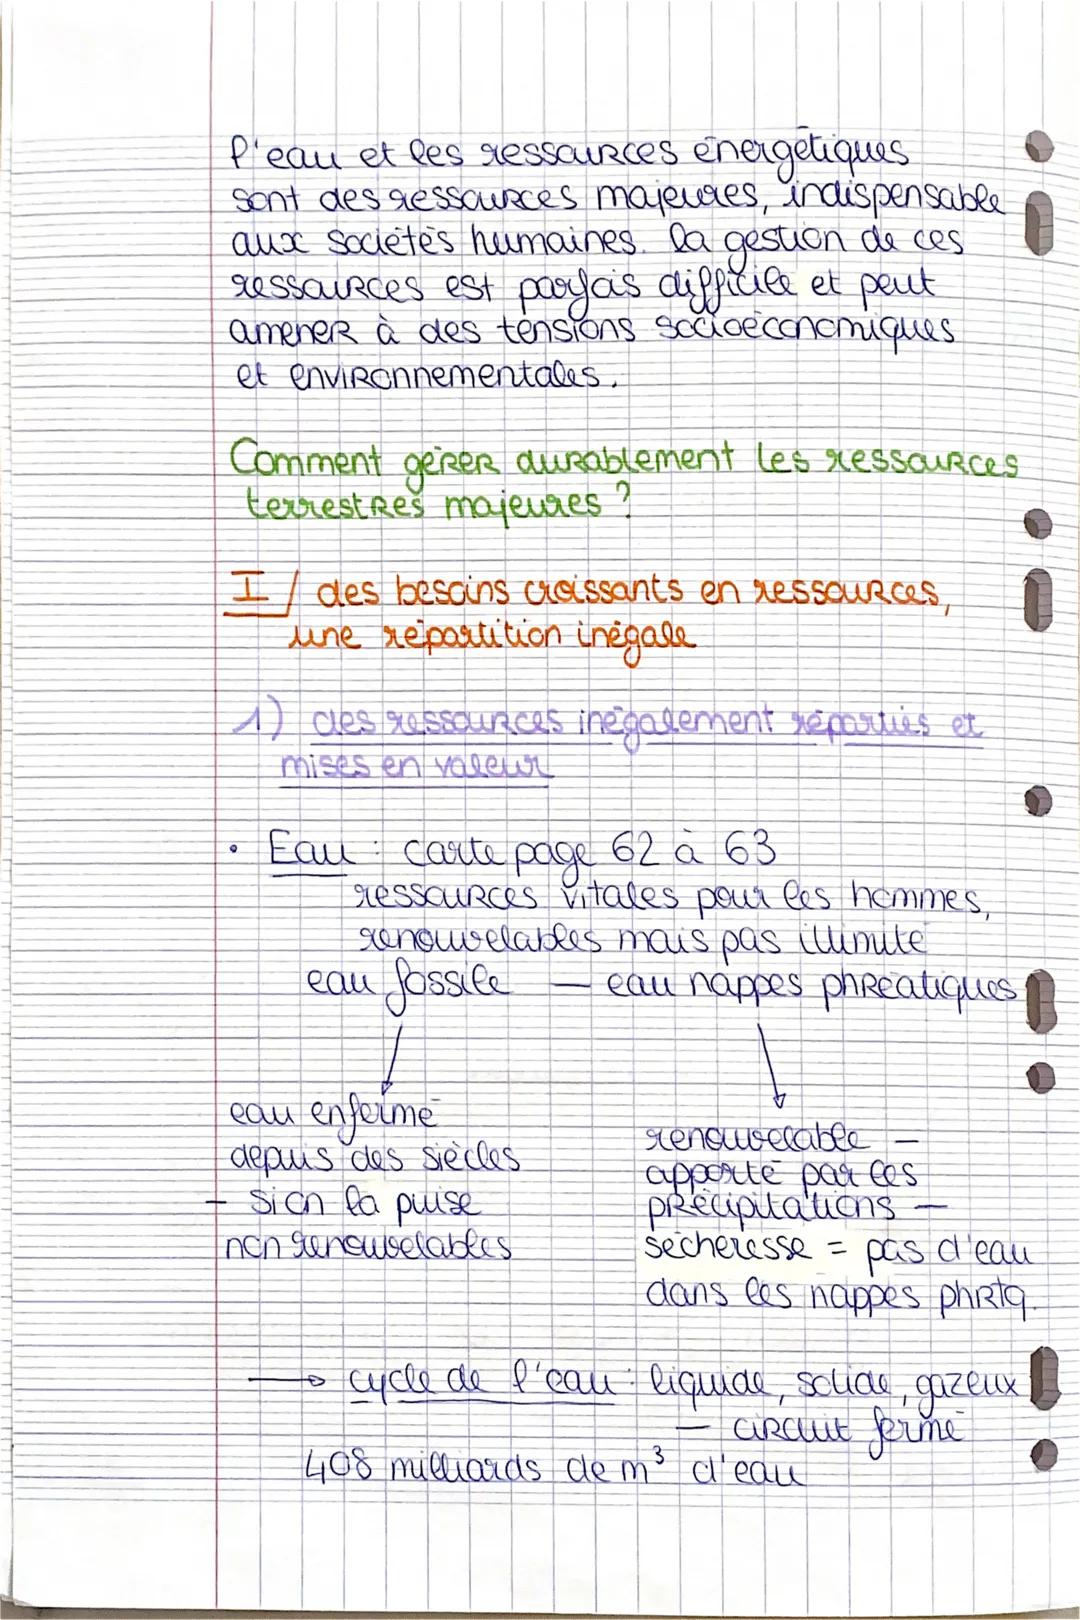 l'eau et les ressources énergétiques
sont des ressources majeures, indispensable
aux sociétés humaines. la gestion de ces
ressources est parfois difficile et peut
amener à des tensions socioéconomiques
et environnementales.
Comment gérer durablement les ressources
terrestres majeures ?
I / des besoins croissants en ressources,
une répartition inégale
1) des ressources inégalement réparties et
mises en valeur
• Eau : carte page 62 à 63
ressources vitales pour les hommes,
renouvelables mais pas illimité
eau fossile — eau nappes phréatiques
eau enfermé
depuis des siècles
- si on la puise
non renouvelables
renouvelable -
apporté par les
précipitations -
sécheresse = pas d'eau
dans les nappes phrtq.
→ cycle de l'eau : liquide, solide, gazeux
- circuit fermé
408 milliards de m³ d'eau